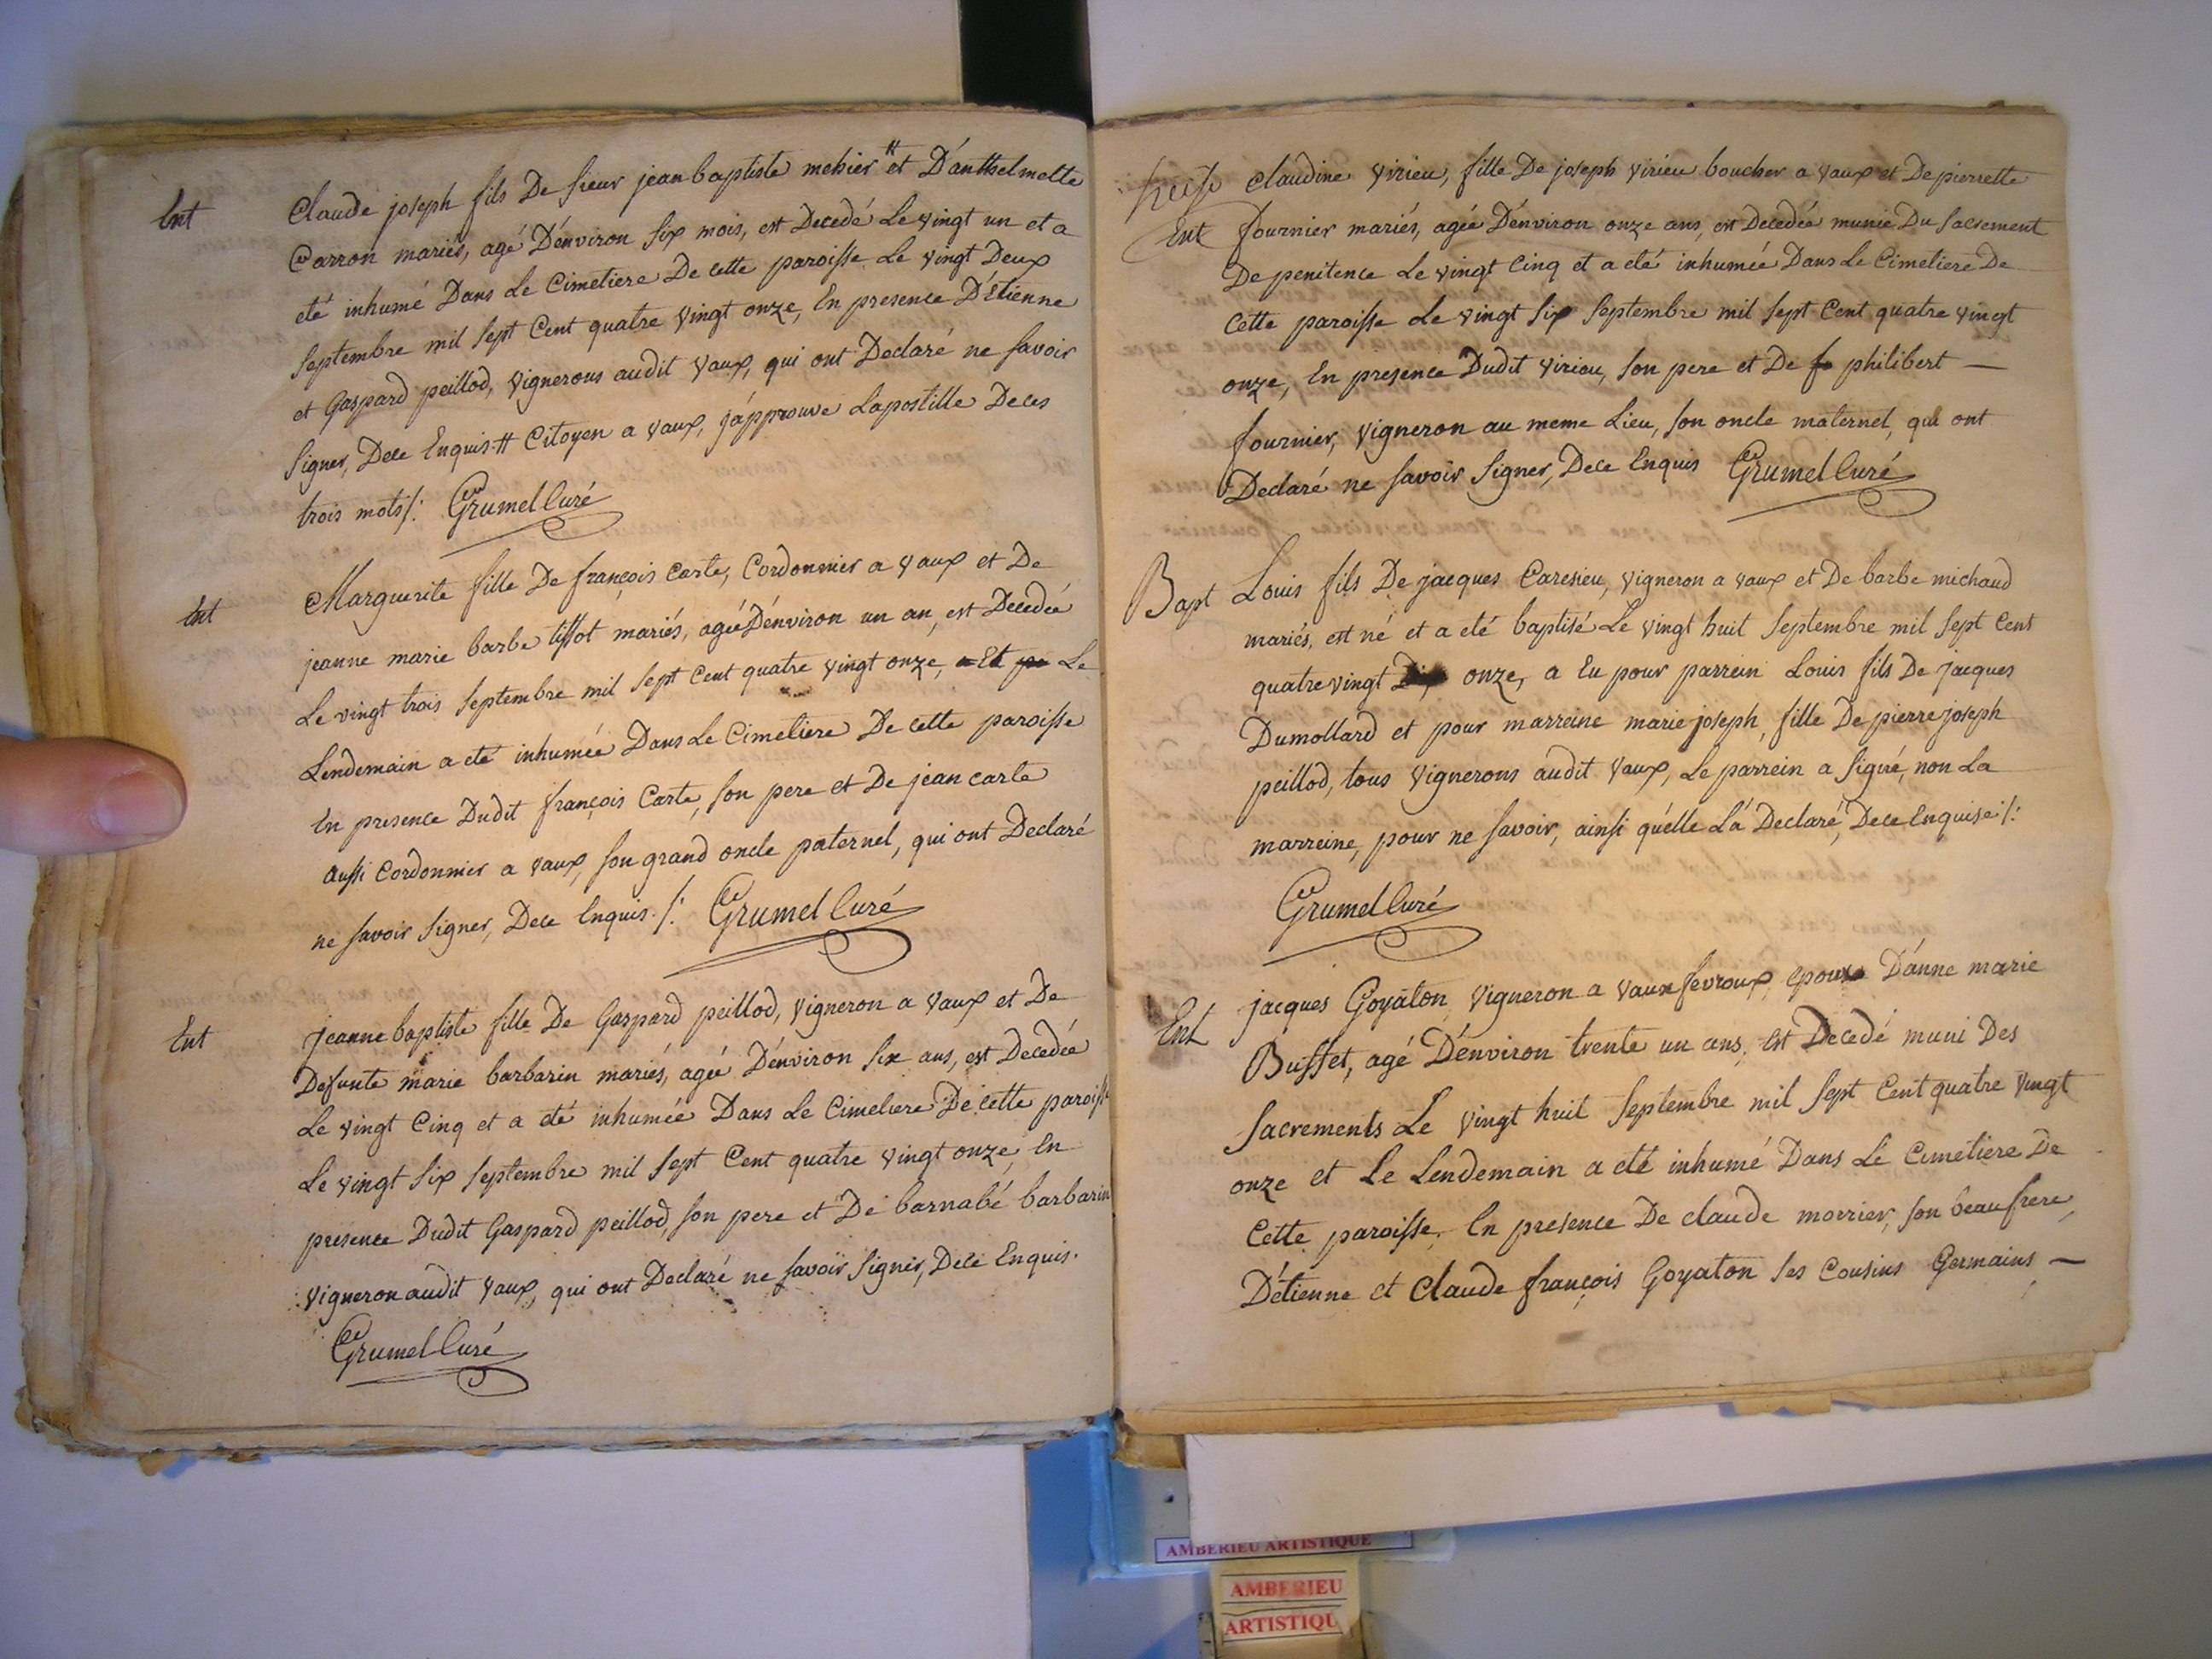 Ent
Claude joseph fils De sieur jean baptiste mehier # et D'anthelmette
Carron mariés, agé D'environ six mois, est Decedé Le vingt un et a
eté inhumé Dans Le Cimetiere De cette paroisse Le vingt Deux
septembre mil sept Cent quatre vingt onze, En presence D'Etienne
et Gaspard peillod, vignerons audit vaux, qui ont Declaré ne savoir
signer, Dece Enquis. # Citoyen a vaux, j'approuve Lapostille De ces
trois mots /: Grumel Curé
Ent
Marguerite fille De françois Carte, Cordonnier a vaux et De
jeanne marie barbe tissot mariés, agée D'environ un an, est Decedée
Le vingt trois septembre mil sept Cent quatre vingt onze, Et Le
Lendemain a eté inhumée Dans Le Cimetiere De cette paroisse
En presence Dudit françois Carte, son pere et De jean carte
aussi Cordonnier a vaux, son grand oncle paternel, qui ont Declaré
ne savoir signer, Dece Enquis. /: Grumel Curé
Ent
Jeanne baptiste fille De Gaspard peillod, vigneron a vaux et De
Defunte marie barbarin mariés, agée D'environ six ans, est Decedée
Le vingt Cinq et a eté inhumée Dans Le Cimetiere De cette paroisse
Le vingt six septembre mil sept Cent quatre vingt onze, En
presence Dudit Gaspard peillod, son pere et De barnabé barbarin
vigneron audit vaux, qui ont Declaré ne savoir signer, Dece Enquis.
Grumel Curé
Claudine virieu, fille De joseph virieu boucher a vaux et De pierrette
Ent
fournier mariés, agée D'environ onze ans, est Decedée munie Du sacrement
De penitence Le vingt Cinq et a eté inhumée Dans Le Cimetiere De
Cette paroisse Le vingt six septembre mil sept Cent quatre vingt
onze, En presence Dudit virieu, son pere et De philibert —
fournier, vigneron au meme Lieu, son oncle maternel, qui ont
Declaré ne savoir signer, Dece Enquis Grumel Curé
Bapt
Louis fils De jacques Caresieu, vigneron a vaux et De barbe michaud
mariés, est né et a eté baptisé Le vingt huit septembre mil sept Cent
quatre vingt onze, a Eu pour parrein Louis fils De jacques
Dumollard et pour marreine marie joseph, fille De pierre joseph
peillod, tous vignerons audit vaux, Le parrein a signé, non La
marreine, pour ne savoir, ainsi qu'elle L'a Declaré, Dece Enquise /:
Grumel Curé
Ent
jacques Goyaton, vigneron a vaux fevroux, epoux D'anne marie
Buffet, agé D'environ trente un ans, est Decedé muni Des
sacrements Le vingt huit septembre mil sept Cent quatre vingt
onze et Le Lendemain a eté inhumé Dans Le Cimetiere De
Cette paroisse, En presence De claude morrier, son beau frere,
D'etienne et Claude françois Goyaton ses Cousins Germains —
AMBERIEU ARTISTIQUE
AMBERIEU
ARTISTIQU